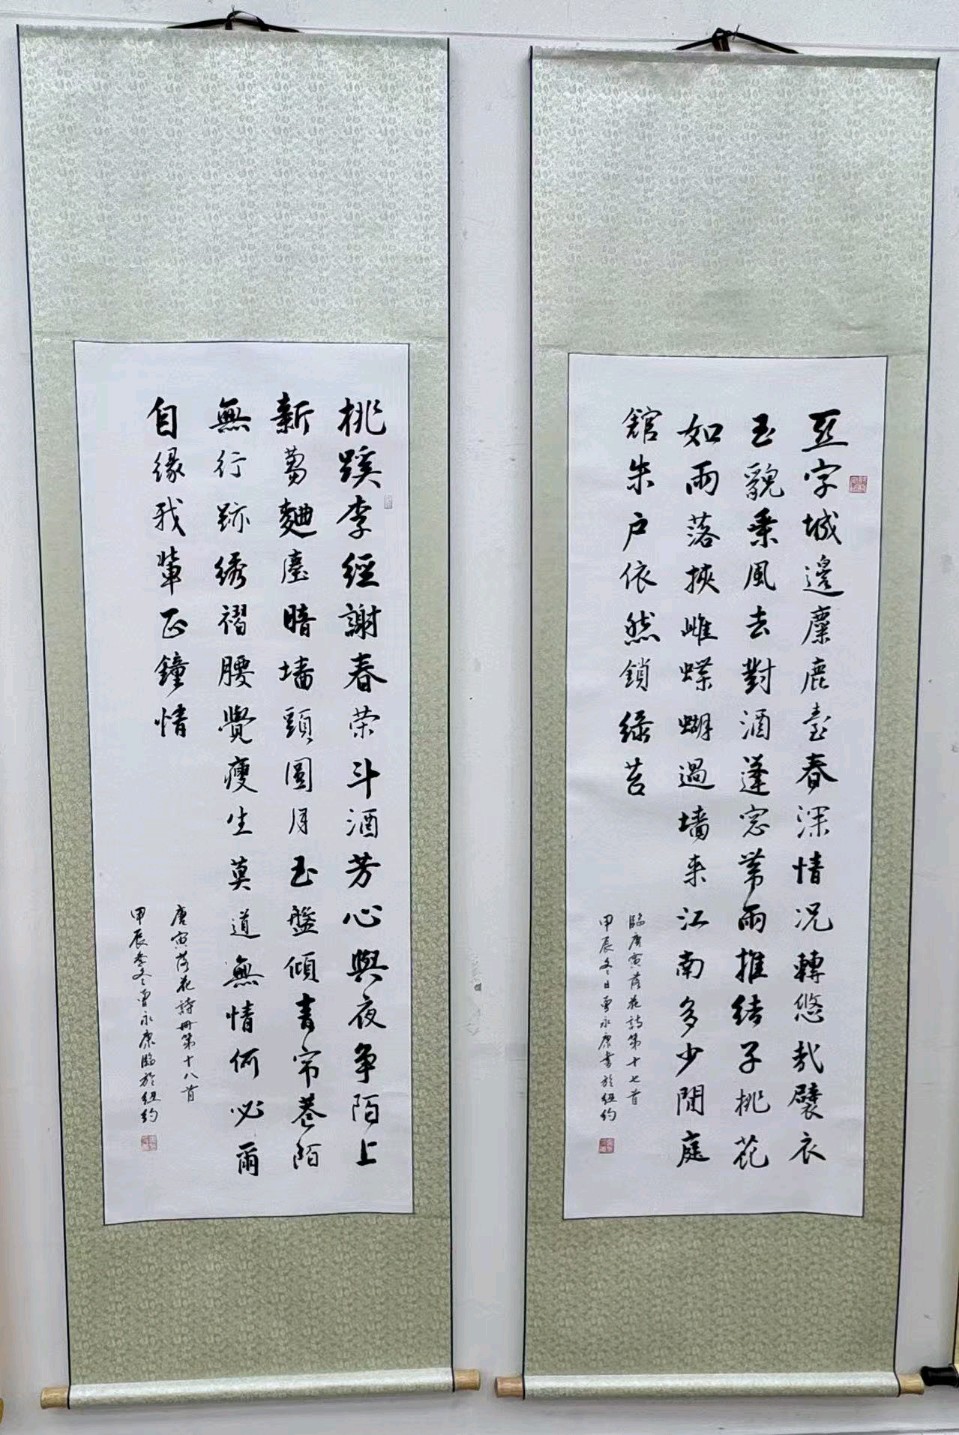 亞字城邊麋鹿臺春深情況轉悠哉襞衣
玉貌乘風去對酒蓬窓帶雨推結子桃花
如雨落挾雌蝶蝴過墻来江南多少閒庭
舘朱戶依然鎖绿苔
臨唐寅落花詩第十七首
甲辰冬日曹永康書於纽约
桃蹊李經謝春荣斗酒芳心與夜争陌上
新蒭麯臺暗墙頭圓月玉盤傾青帘巷陌
無行跡绣褶腰覺瘦生莫道無情何必爾
自缘我輩正鐘情
唐寅落花詩冊第十八首
甲辰季冬曹永康臨於纽约